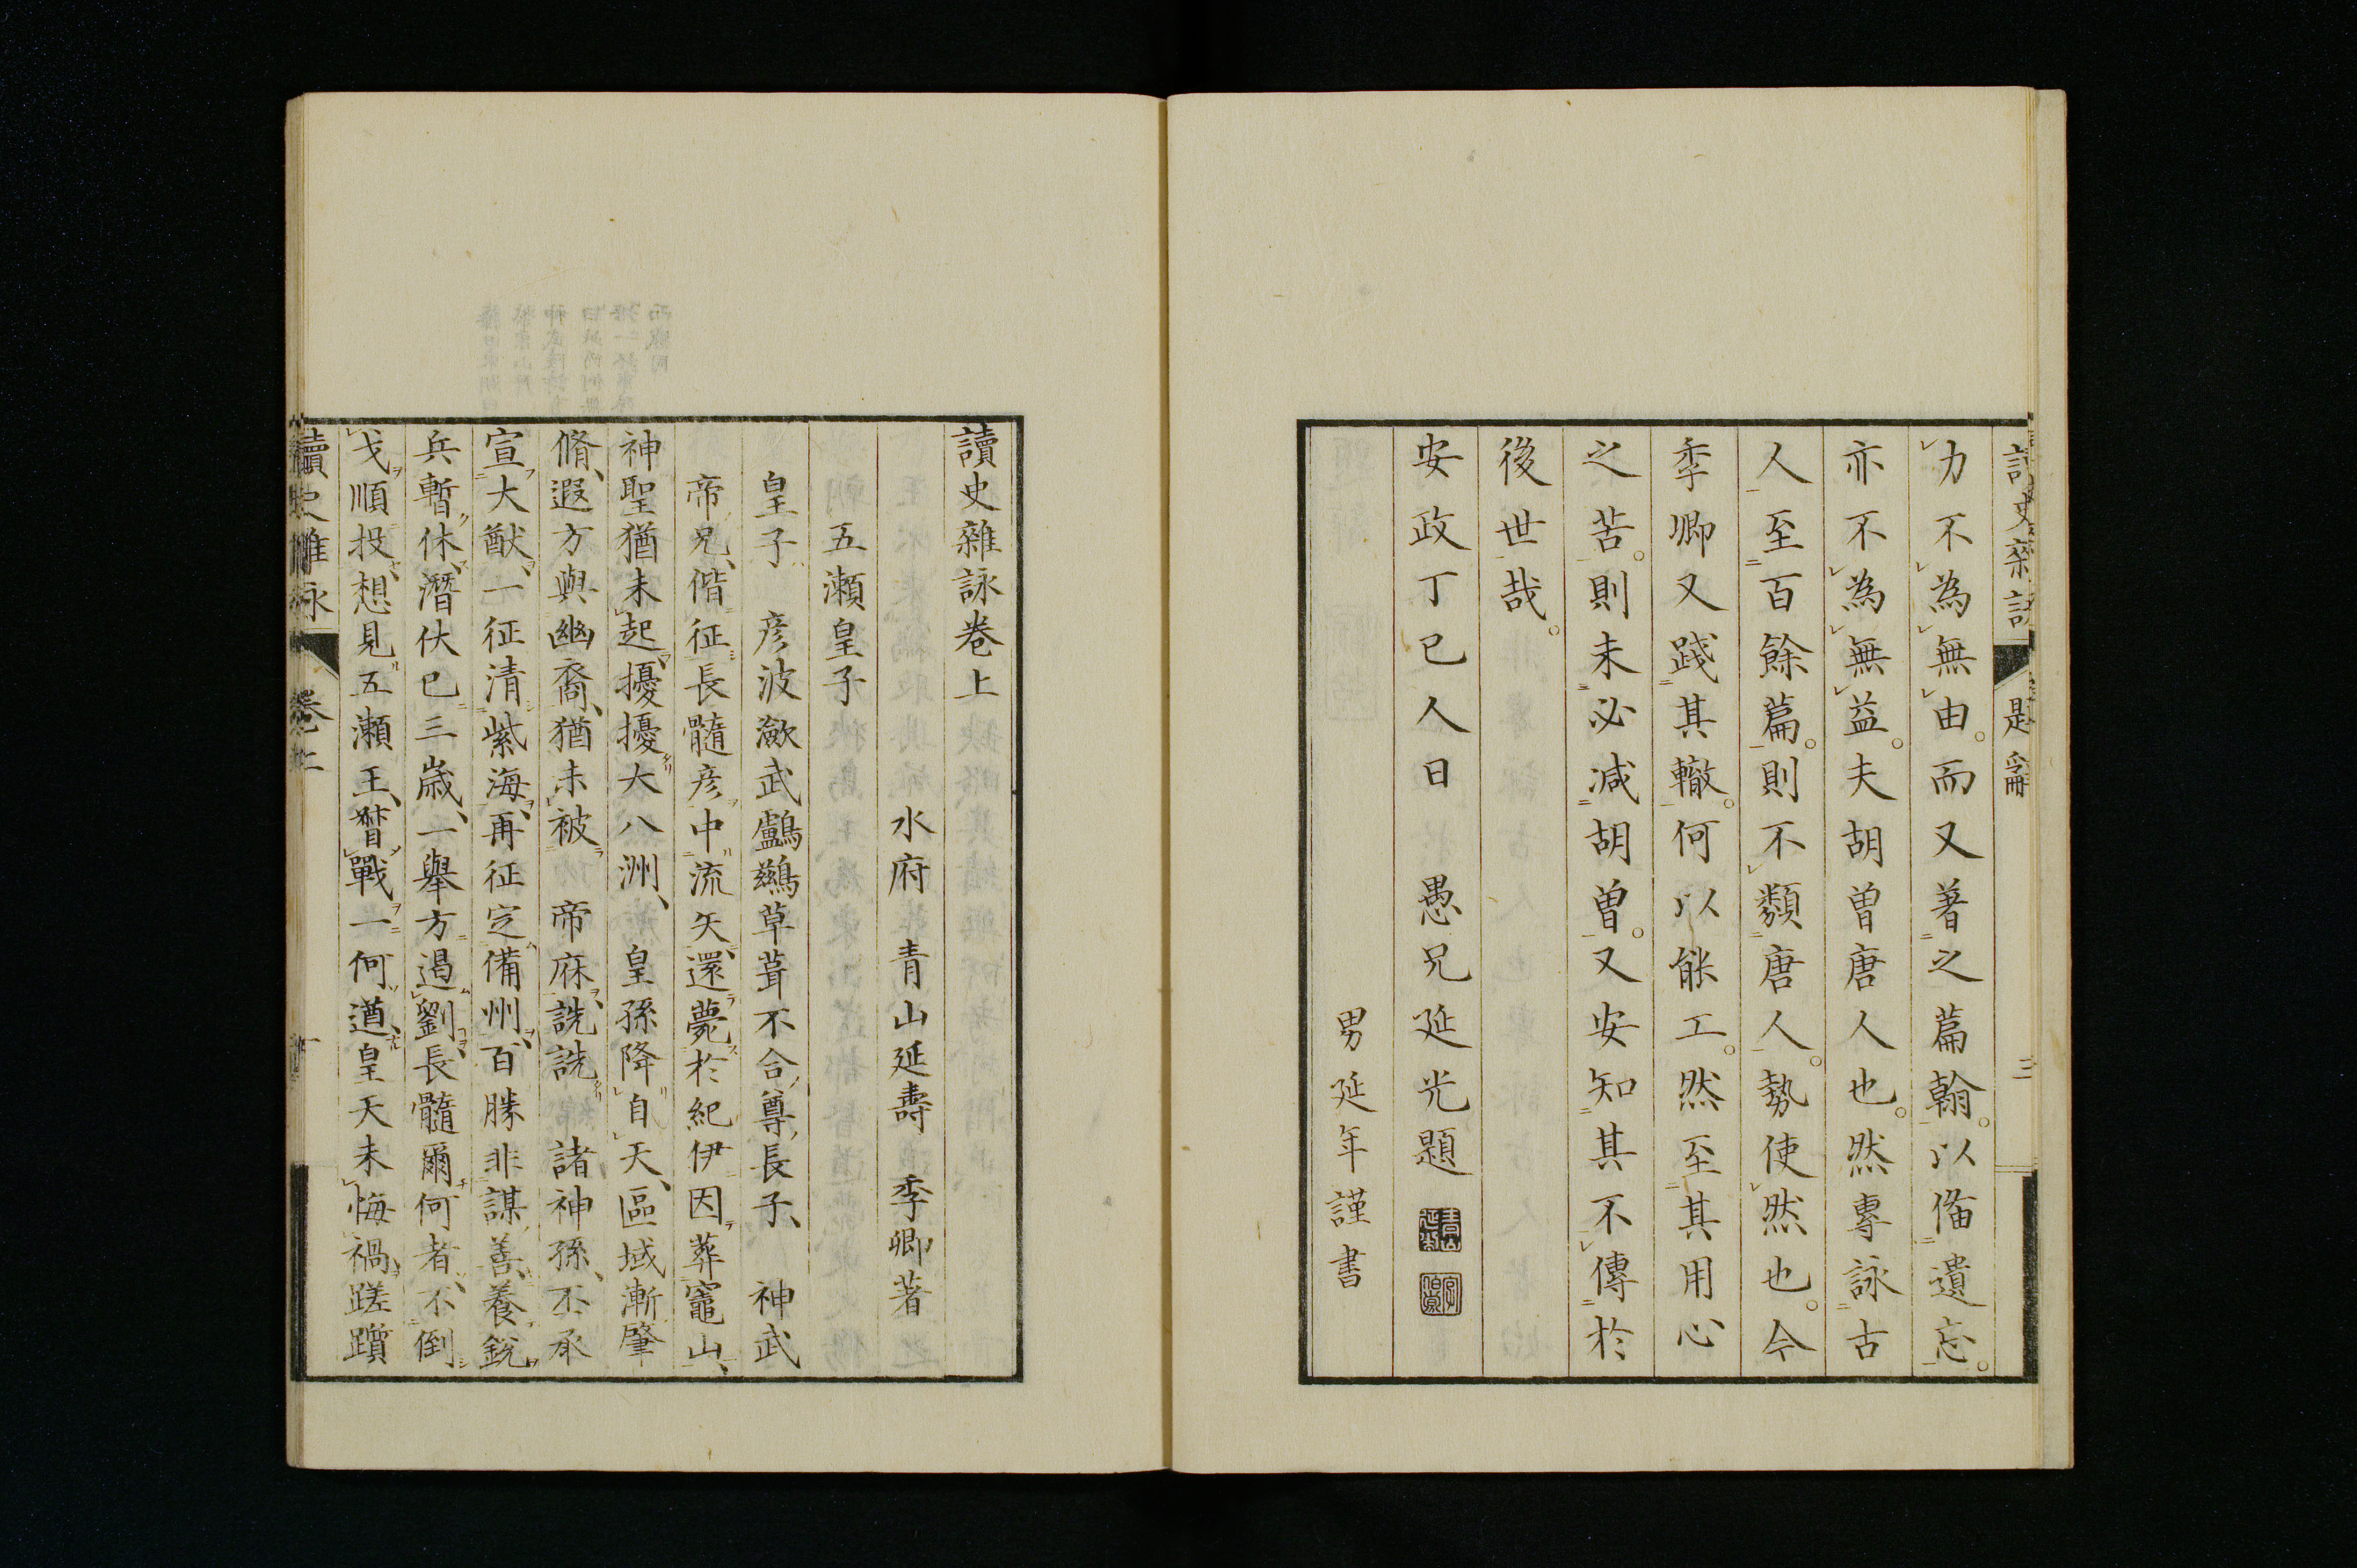 力不為無由。而又著之篇翰。以偹遺忘。
亦不為無益。夫胡曽唐人也。然專詠古
人至百餘篇。則不類唐人。勢使然也。今
季卿又踐其轍。何以能工。然至其用心
之苦。則未必減胡曽。又安知其不傳於
後世哉。
安政丁巳人日 愚兄延光題
男延年謹書
讀史雜詠卷上
水府 青山延壽 季卿著
五瀬皇子
皇子 彦波瀲武鸕鷀草葺不合尊長子、 神武
帝兄、偕征長髓彦中流矢、還薨於紀伊因葬竈山、
神聖猶未起、擾擾大八洲、 皇孫降自天、區域漸肇
脩、遐方與幽裔、猶未被 帝庥、詵詵 諸神孫、丕承
宣大猷、一征清紫海、再征定備州、百勝非謀善、養銳
兵暫休、潛伏已三歳、一舉方遏劉、長髓爾何者、不倒
戈順投、想見五瀬王、督戰一何遒、皇天未悔禍、蹉躓
讀史雜詠 卷上 一